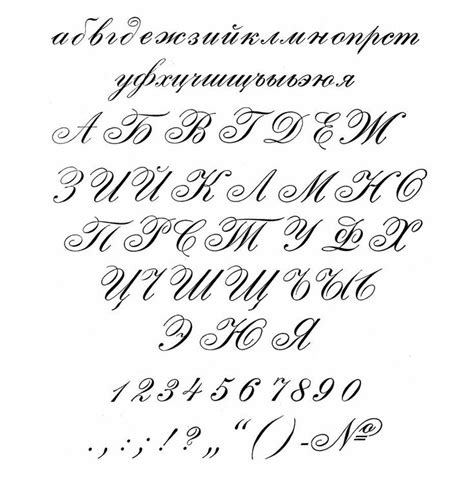 абвгдежзийклмнопрст
уфхцчшщъыьэюя
А Б В Г Д Е Ж
З И Й К Л М Н О
П Р С Т У Ф Х
Ц Ч Ш Щ Ъ Ы Ь
Э Ю Я
1 2 3 4 5 6 7 8 9 0
. , : ; ! ? „ “ ( ) - №